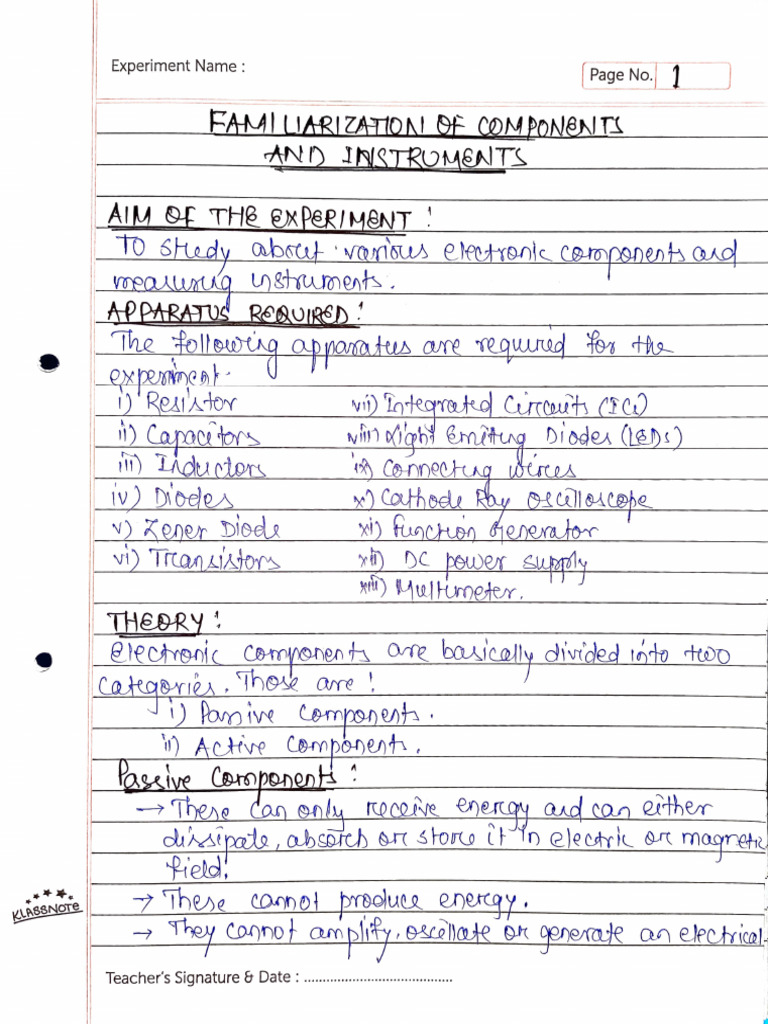 Experiment Name :
Page No. 1
FAMILIARIZATION OF COMPONENTS
AND INSTRUMENTS
AIM OF THE EXPERIMENT :
To study about various electronic components and
measuring instruments.
APPARATUS REQUIRED :
The following apparatus are required for the
experiment.
i) Resistor
ii) Capacitors
iii) Inductors
iv) Diodes
v) Zener Diode
vi) Transistors
vii) Integrated Circuits (ICs)
viii) Light Emiting Diodes (LEDs)
ix) Connecting wires
x) Cathode Ray oscilloscope
xi) Function Generator
xii) DC power supply
xiii) Multimeter.
THEORY :
Electronic components are basically divided into two
categories. Those are :
i) Passive Components.
ii) Active Components.
Passive Components :
→ These can only receive energy and can either
dissipate, absorb or store it in electric or magnetic
field.
→ These cannot produce energy.
→ They cannot amplify, oscillate or generate an electrical
KLASSNOTE
Teacher's Signature & Date : ......................................